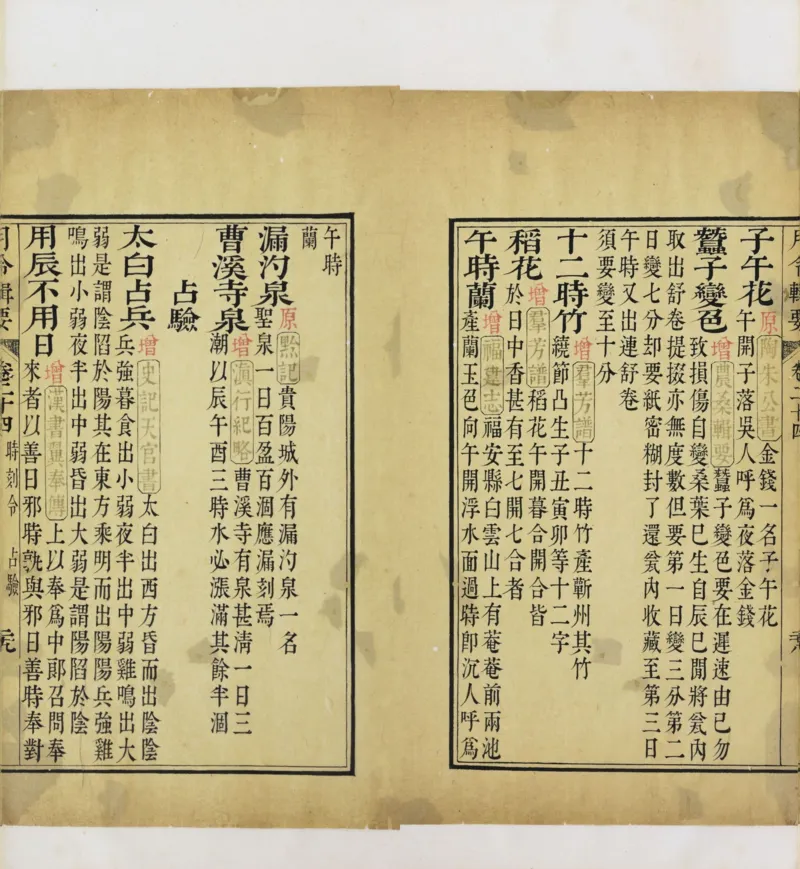 月令輯要 卷二十四
子午花 原陶朱公書金錢一名子午花
午開子落吳人呼爲夜落金錢
蠶子變色 增農桑輯要蠶子變色要在遲速由已勿
致損傷自變桑葉已生自辰巳間將瓮內
取出舒卷提掇亦無度數但要第一日變三分第二
日變七分却要紙密糊封了還瓮內收藏至第三日
午時又出連舒卷
須要變至十分
十二時竹 增羣芳譜十二時竹產蘄州其竹
繞節凸生子丑寅卯等十二字
稻花 增羣芳譜稻花午開暮合開合皆
於日中香甚有至七開七合者
午時蘭 增福建志福安縣白雲山上有菴菴前兩池
產蘭玉色向午開浮水面過時卽沉人呼爲
午時
蘭
漏汋泉 原黔記貴陽城外有漏汋泉一名
聖泉一日百盈百涸應漏刻焉
曹溪寺泉 增滇行紀略曹溪寺有泉甚清一日三
潮以辰午酉三時水必漲滿其餘半涸
占驗
太白占兵 增史記天官書太白出西方昏而出陰陰
兵強暮食出小弱夜半出中弱雞鳴出大
弱是謂陰陷於陽其在東方乘明而出陽陽兵強雞
鳴出小弱夜半出中弱昏出大弱是謂陽陷於陰
用辰不用日 增漢書翼奉傳上以奉爲中郞召問奉
來者以善日邪時孰與邪日善時奉對
月令輯要 卷二十四 時刻令 占驗